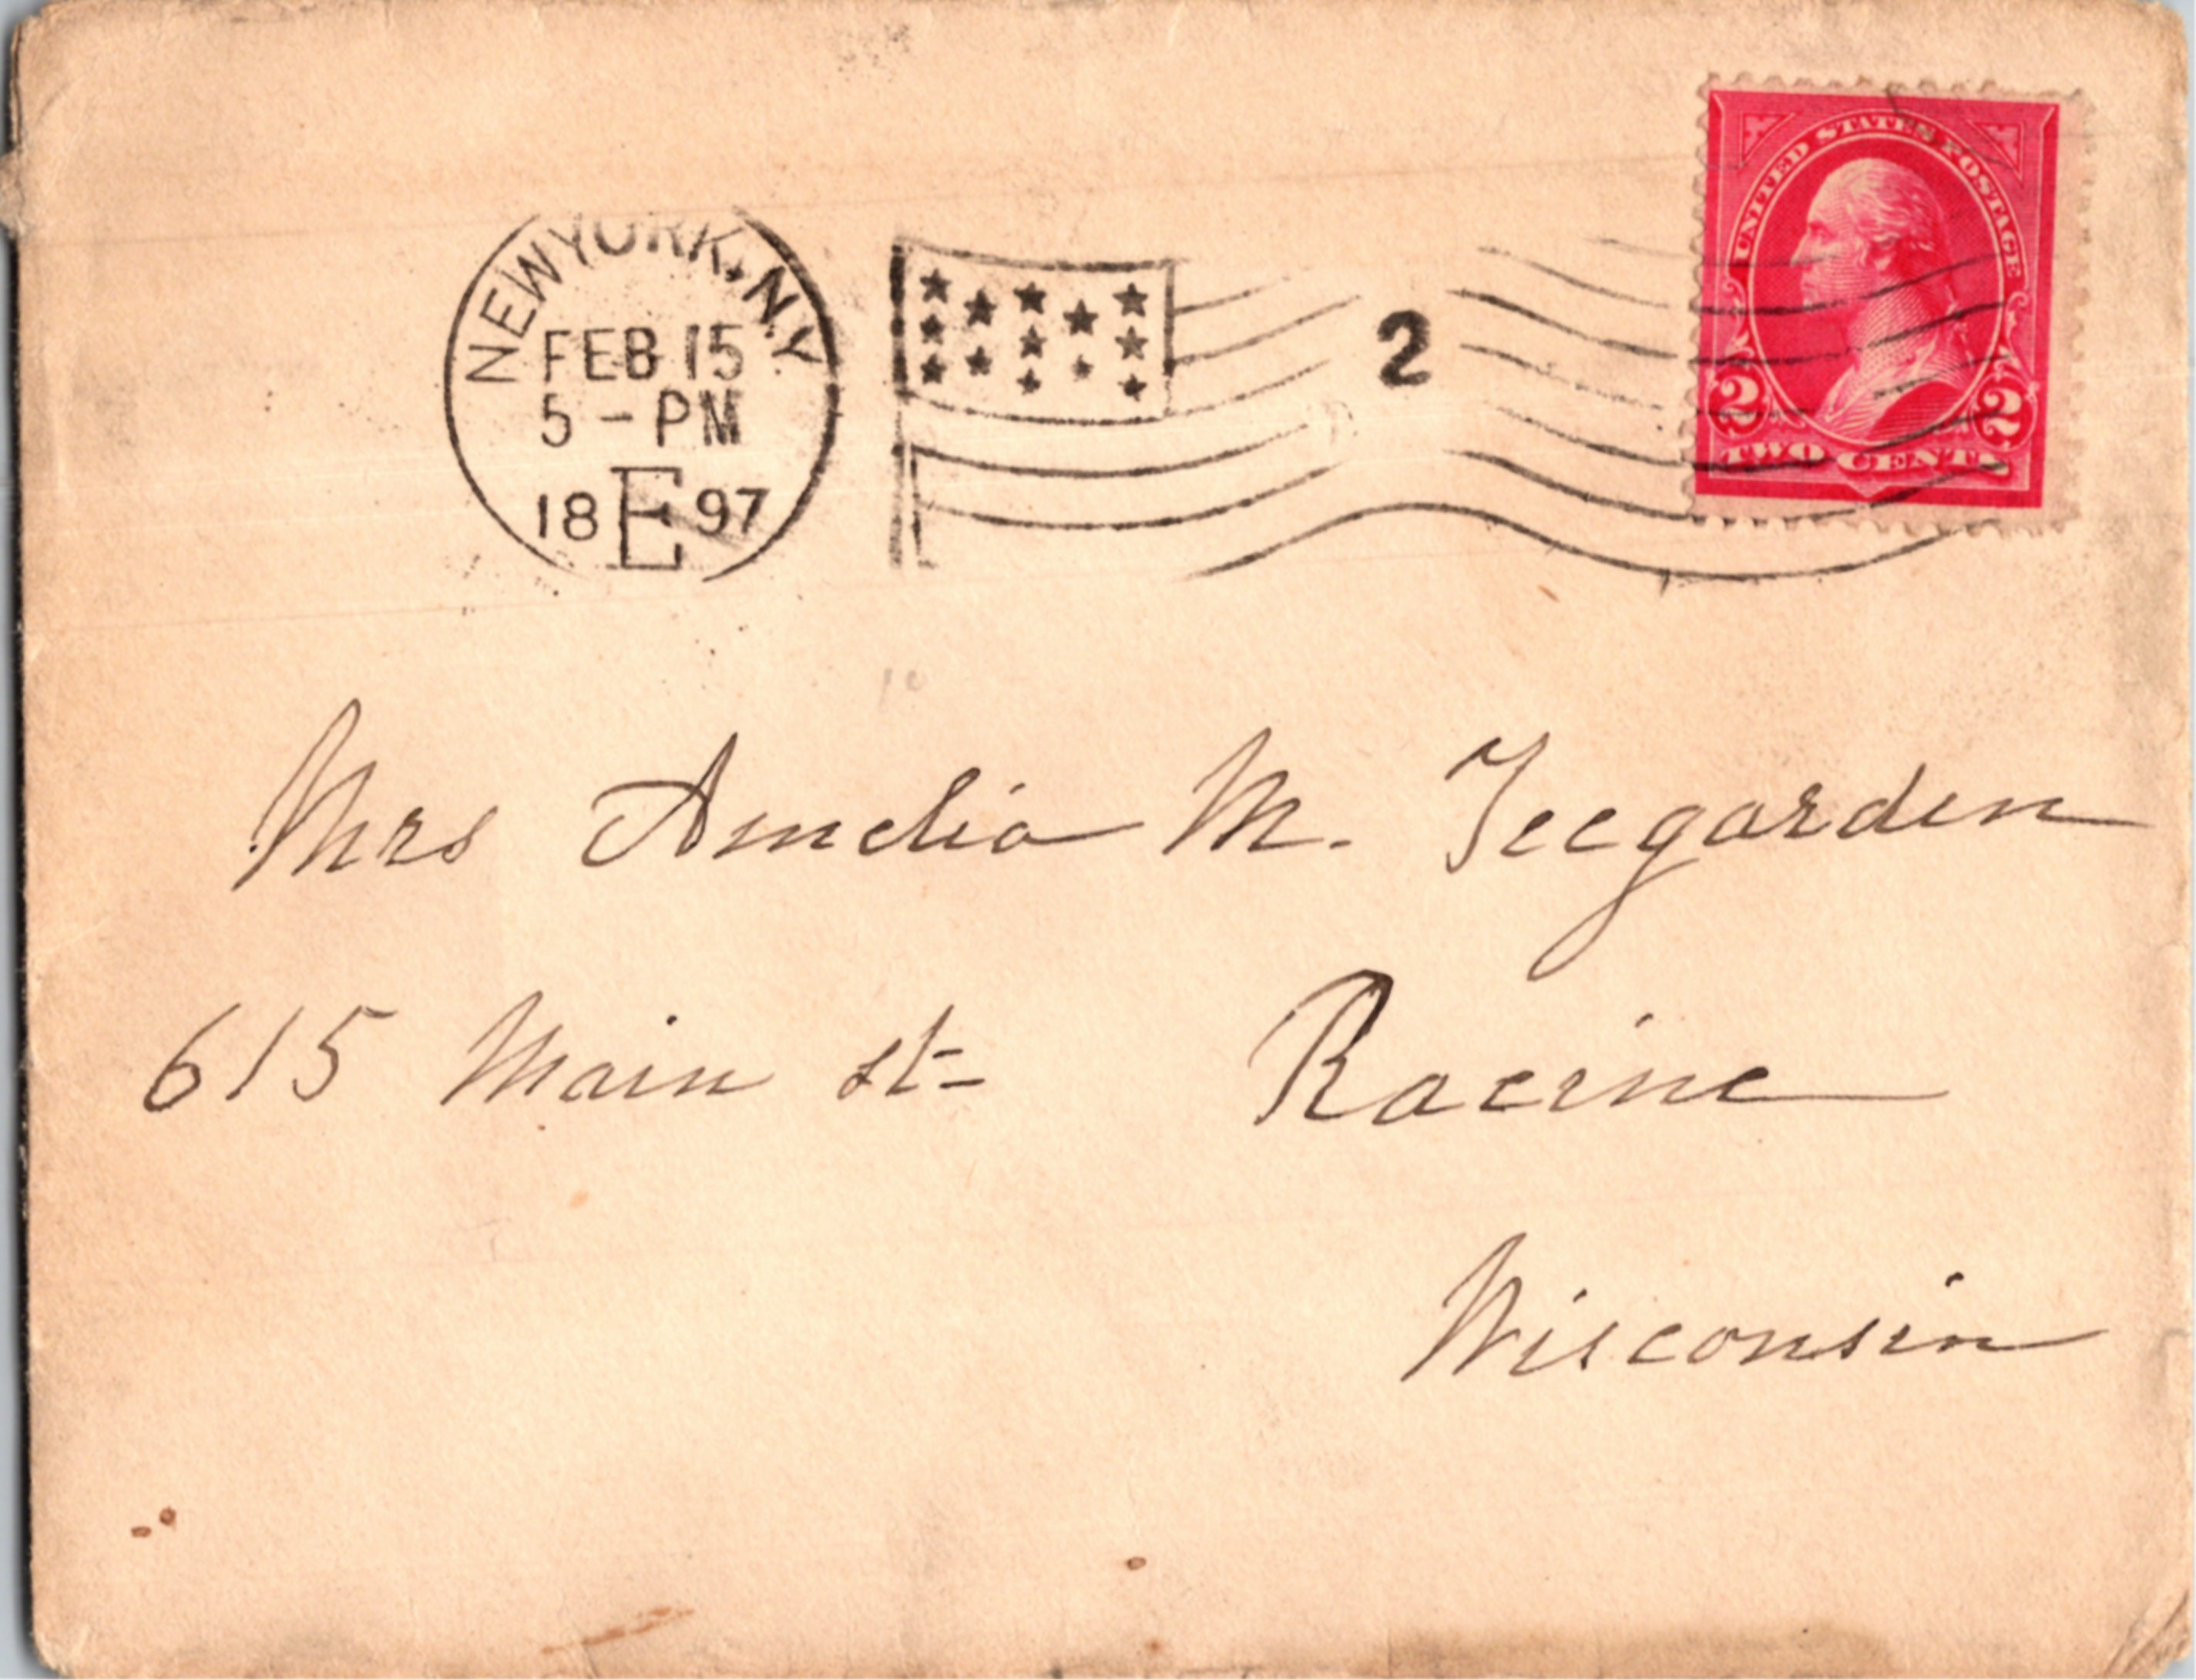 NEW YORK, N.Y.
FEB 15
5 - PM
18 E 97
2
UNITED STATES POSTAGE
2 2
TWO CENTS
Mrs Amelia M. Teegarden
615 Main st- Racine
Wisconsin